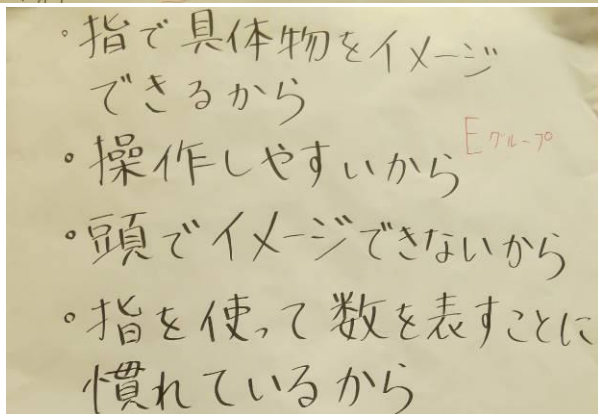 ・指で具体物をイメージ
できるから
・操作しやすいから
Eグループ
・頭でイメージできないから
・指を使って数を表すことに
慣れているから